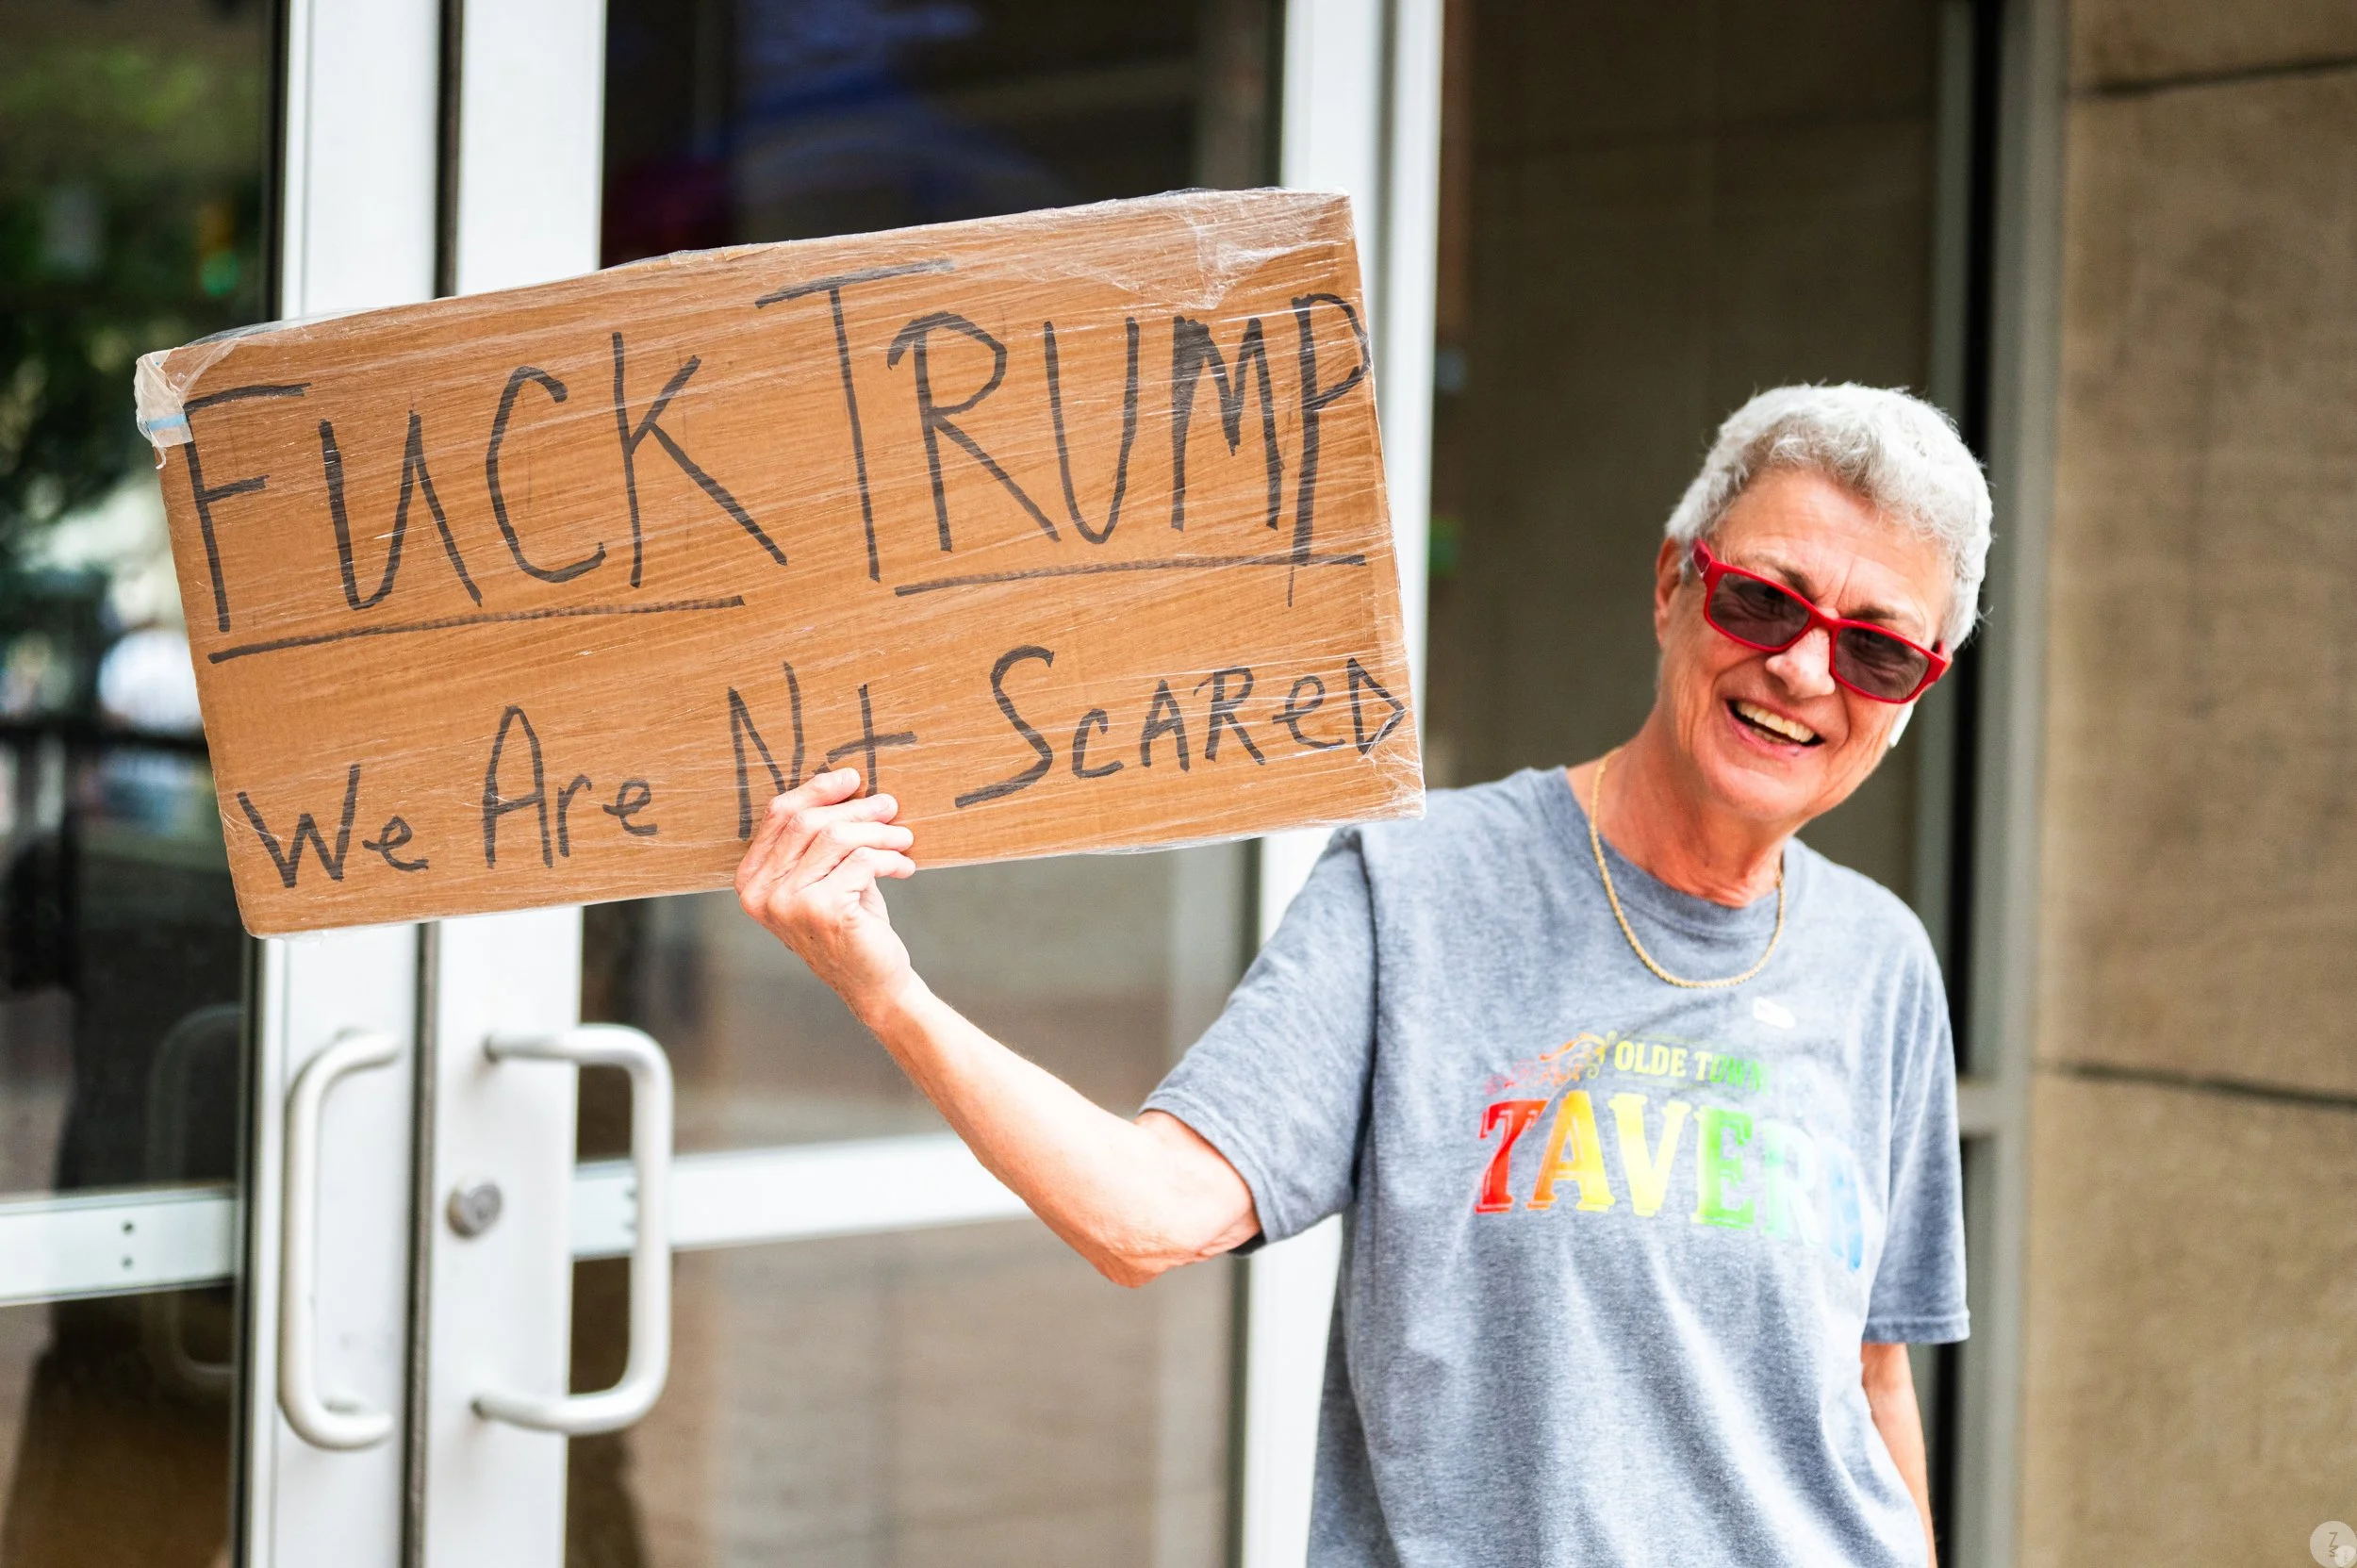 FUCK TRUMP
We Are Nt SCAReD
OLDE TOWN
TAVERN